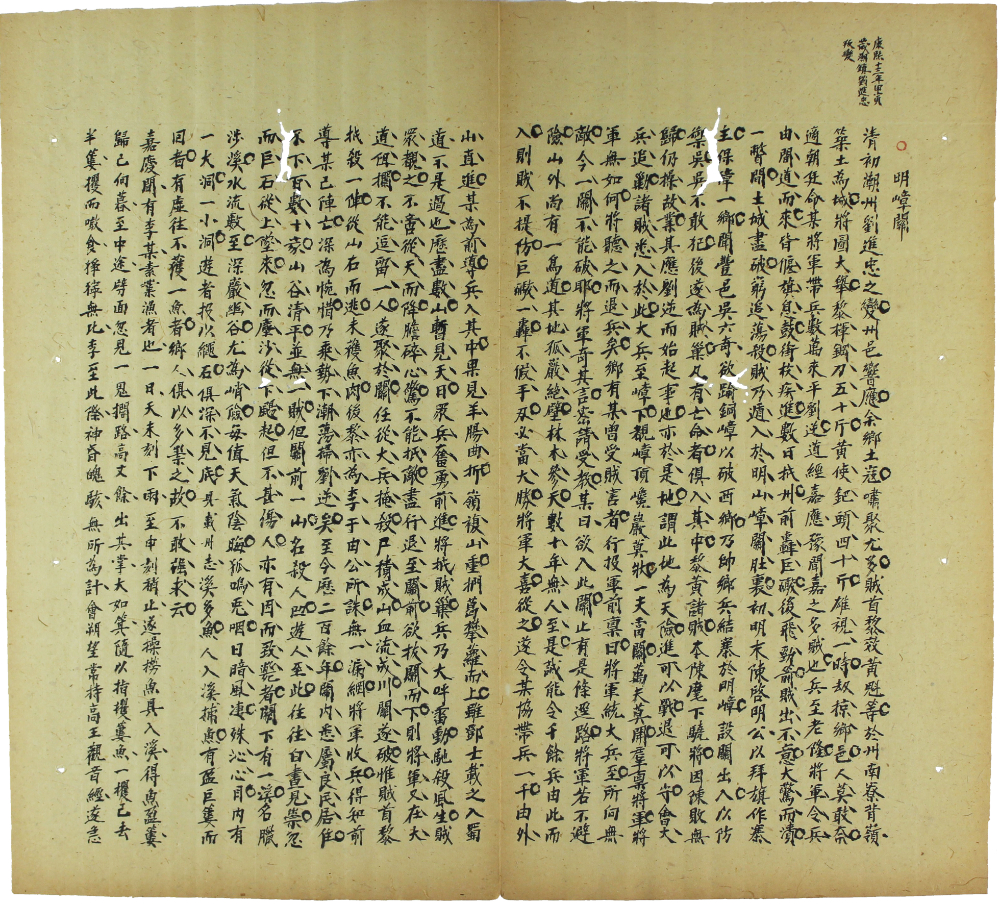 康熙十三年甲寅
歲潮鎮劉進忠
作變
明嶂關
清初潮州劉進忠之變州邑響應余鄉土寇嘯聚尤多賊首黎發黃魁等於州南寮背嶺
築土為城將圖大舉黎揮鐧刀五十斤黃使鈀頭四十斤雄視一時劫掠鄉邑人莫敢奈
適朝廷命某將軍帶兵數萬來平劉逆道經嘉應豫聞嘉之多賊也兵至老隆將軍令兵
由間道而來侍偃旗息鼓銜枚疾進數日抵州前轟巨礮復飛勁箭賊出不意大驚而潰
一瞥間土城盡破窮追蕩殺賊乃遁入於明山嶂關肚裏初明末陳啓明公以拜旗作寨
主保障一鄉聞豐邑吳六奇欲踰銅嶂以破西鄉乃帥鄉兵結寨於明嶂設關出入以防
禦吳吳不敢犯後遂為賊巢凡有亡命者俱入其中黎黃諸賊本陳麾下驍將因陳敗無
歸仍操故業其應劉逆而始起事也亦於是地謂此地為天險進可以戰退可以守會大
兵追勦諸賊悉入於此大兵至嶂下覩嶂頂巉巖莫狀一夫當關萬夫莫開羣稟將軍將
軍無如何將聽之而退兵矣鄉有某曾受賊害者行投軍前稟曰將軍統大兵至所向無
敵今一關不能破耶將軍奇其言密請受教某曰欲入此關止有是條逕路將軍若不避
險山外尚有一鳥道其地孤嚴絕壁林木參天數十年無人至是誠能令千餘兵由此而
入則賊不提防巨礮一轟不假手刃必當大勝將軍大喜從之遂令某協帶兵一千由外
山直進某為前導兵入其中果見羊腸曲折嶺複山重捫葛攀蘿而上雖鄧士載之入蜀
道不是過也應盡數山暫見天日眾兵奮勇前進將抵賊藪兵乃大呼雷動馳殺風生賊
眾觀之不啻從天而降膽碎心驚不能抵敵盡行退至關前欲扳關而下則將軍又在大
道伺擱不能逗留一人遂聚於關任從大兵掩殺尸積成山血流成川關遂破惟賊首黎
抵殺一陣從山右而逃未獲魚肉後黎亦為李于由公所誅無一漏網將軍收兵得知前
導某已陣亡深為惋惜乃乘勢下潮蕩掃劉逆矣至今應二百餘年關內悉屬良民居住
不下百數十家山谷清平並無一賊但關前一山名殺人凹遊人至此往往白晝見祟忽
而巨石從上墜來忽而塵沙從下颺起但不甚傷人亦有因而致斃者關下有一溪名臘
涉溪水流數至深巖幽谷尤為峭險每值天氣陰晦狐嗚兎咽日暗風凄殊沁心目內有
一大洞一小洞遊者探以繩石俱深不見底具載州志溪多魚人入溪捕魚有盈巨簍而
回者有虛往不獲一魚者鄉人俱以多祟之故不敢強求云
嘉慶間有李某素業漁者也一日天未刻下雨至申刻稍止遂操撈魚具入溪得魚盈簍
歸已向暮至中途劈面忽見一鬼攔路高丈餘出其掌大如箕隨以指攫簍魚一攫已去
半簍攫而嗷食獰猙無比李至此際神昏魄駭無所為計會朔望常持高王觀音經遂急